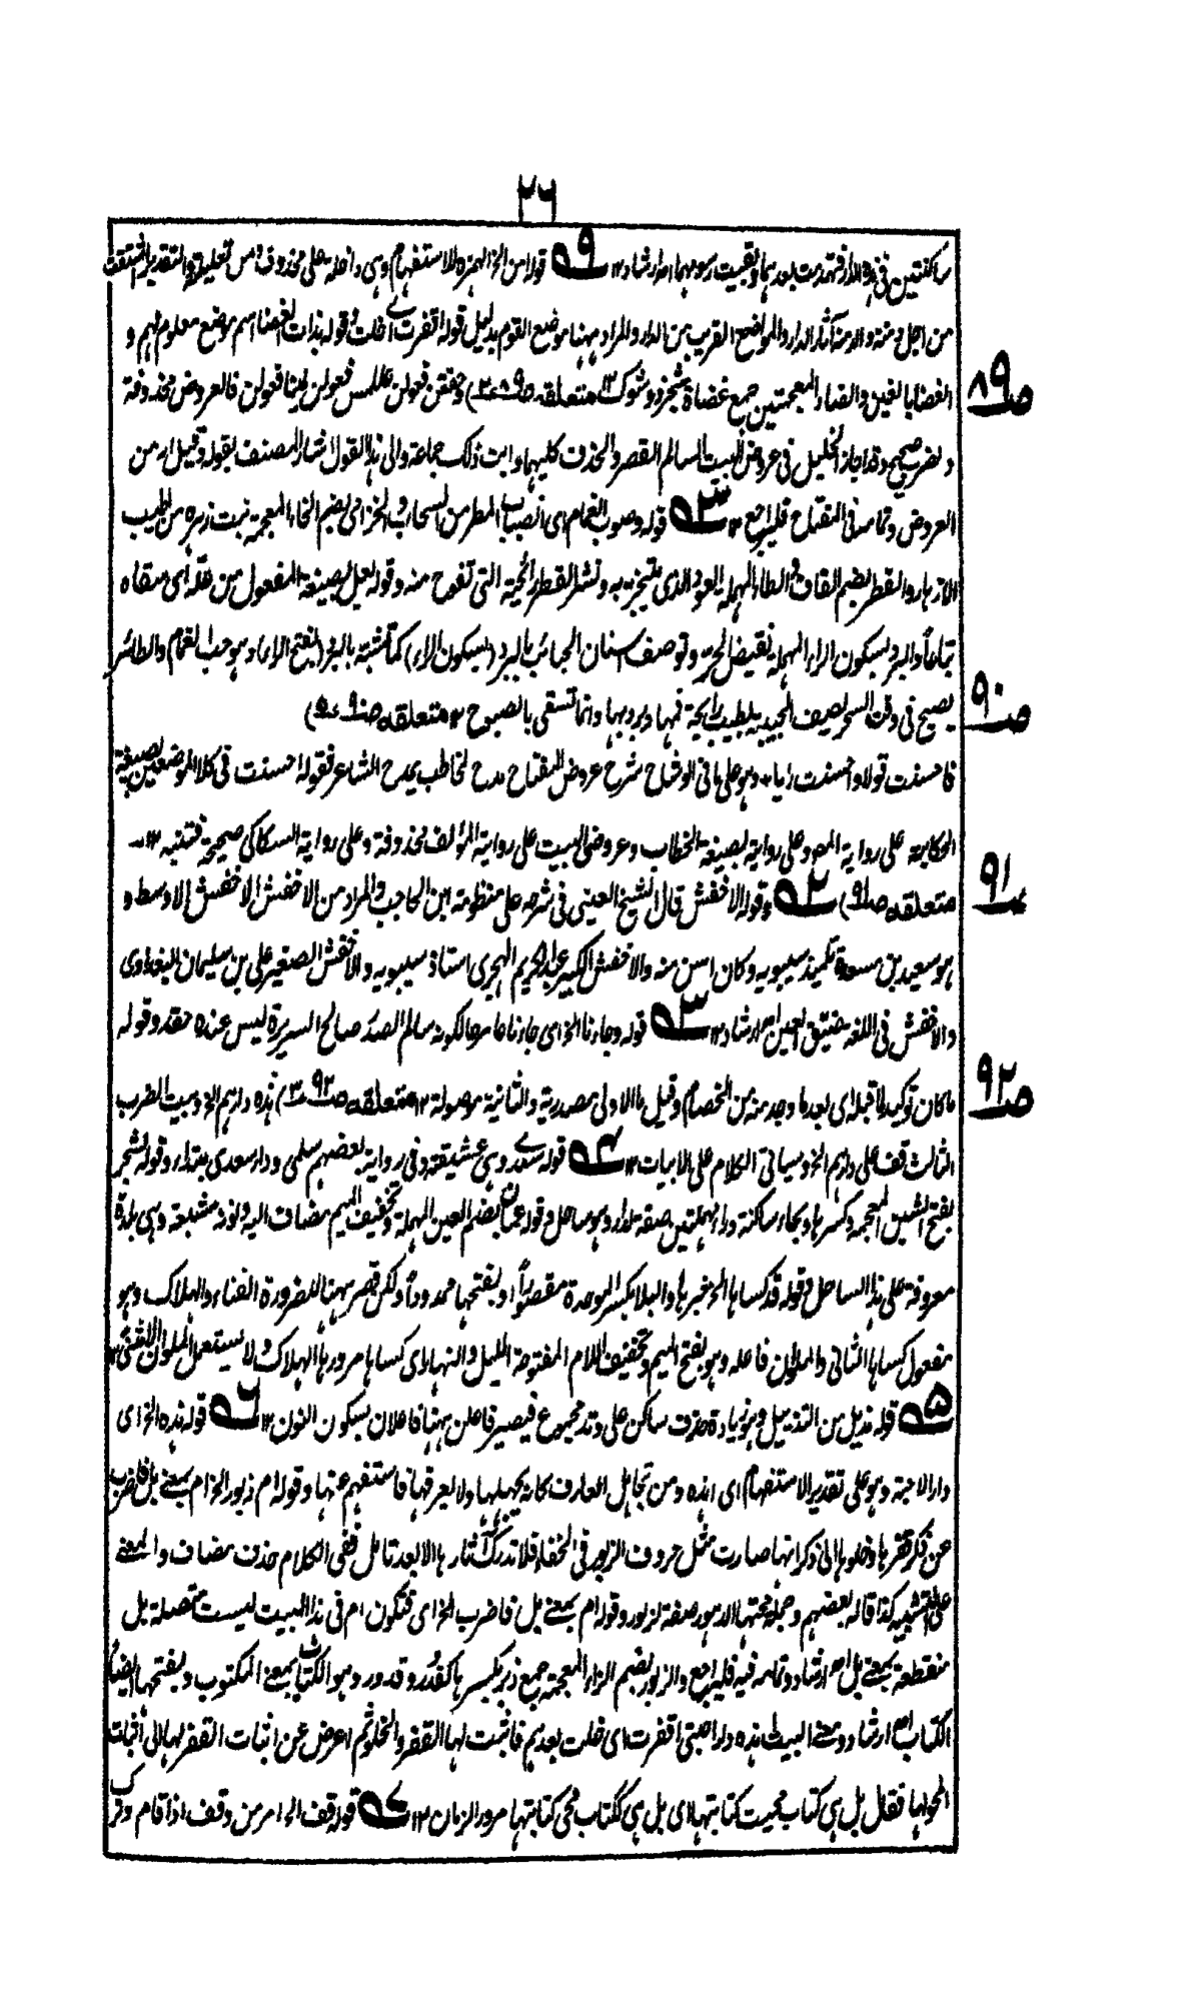 ٢٦
ساكنتين فى هذه الدار قد درست بعدهما وبقيت رسومهما اه ارشاد ١٢ ٩ قوله امن الخ الهمزة للاستفهام وهى داخلة على محذوف ومن تعليلية والتقدير
من اجل دمنة والدمنة آثار الدار والمواضع القريب من الدار والمراد ههنا موضع القوم بدليل قوله اقفرت اى خلت وقوله بذات الغضا اسم موضع معلوم لهم و
الغضا بالغين والضاد المعجمتين جمع غضاة شجر ذو شوك ١٢ متعلقه صـ٨٩
صـ٨٩
وضرب صحيح وقد اجاز الخليل فى عروض البيت السالم القصر والحذف كليهما وابت ذلك جماعة والى هذا القول اشار المصنف بقوله وقيل ار من
العروض وتمامه فى المفتاح فليراجع ١٢ ٣ قوله وصوب الغمام اى انصباب المطر من السحاب والخزامى بضم الخاء المعجمة نبت زهره من اطيب
الازهار والقطر بضم القاف والطاء المهملة العود الذى يتبخر به ونشر القطر رائحته التى تفوح منه وقوله يعل بصيغة المفعول من عله اى سقاه
تباعاً والبرد بسكون الراء المهملة نقيض الحر وتوصف اسنان الحبائب بالبرد (بسكون الراء) كما تشبه بالبرد (بفتح الراء) وهو حب الغمام والطائر
يصيح فى وقت السحر يصف الحبيبة بطيب رائحة فمها وبرودها وانما تسقى بالصبوح ١٢ متعلقه صـ٩٠
صـ٩٠
فاحسنت قولا واحسنت رأيا، وهو على ما فى الوشاح شرح عروض المفتاح مدح لمخاطب يمدح الشاعر فقوله احسنت فى كلا الموضعين بصيغة
الحكاية على رواية المص وعلى رواية بصيغة الخطاب وعروض البيت على رواية المؤلف محذوفة وعلى رواية السكاكى صحيحة فتنبه ١٢
متعلقه صـ٩١) ٢ وقوله الاخفش قال الشيخ العينى فى شرحه على منظومة ابن الحاجب والمراد من الاخفش الاخفش الاوسط و
صـ٩١
هو سعيد بن مسعدة تلميذ سيبويه وكان اسن منه والاخفش الكبير عبد الحريم الهجرى استاذ سيبويه والاخفش الصغير على بن سليمان البغدادى
والاخفش فى اللغة ضيق العين اه ارشاد ١٢ ٣ قوله وجاءنا الخ اى جاءنا مادحا لكونه سالم الصدر صالح السريرة ليس عنده حقد وقوله
ما كان توكيد لما قبله اى بعد ما وجد منه من الخصام وقيل ما الاولى مصدرية والثانية موصولة ١٢ متعلقه صـ٩٢ هذه دارهم الخ وبيت الضرب
صـ٩٢
الثالث قف على دارهم الخ وسياتى الكلام على الابيات ١٢ ٤ قوله سعدى وهى عشيقته وفى رواية بعضهم سلمى ودار سعدى مبتداء وقوله شحر
بفتح الشين المعجمة وكسرها وبحاء ساكنة وراء مهملتين صفة لدار وهو ساحل وقوله عمان بضم العين المهملة وتخفيف الميم مضاف اليه ونونه مشبعة وهى بلدة
معروفة على هذا الساحل وقوله قد كساها الخ خبرها والبلا بكسر الموحدة مقصوراً او بفتحها ممدوداً ولكن قصر ههنا للضرورة الفناء والهلاك وهو
مفعول كساها الثانى والملوان فاعله وهو بفتح الميم وتخفيف اللام المفتوحة الليل والنهار اى كساها مرورهما الهلاك ولا يستعمل الملوان الا مثنى ١٢
٥ قوله مذيل من التذييل وهو زيادة حرف ساكن على وتد مجموع فيصير فاعلن ههنا فاعلان بسكون النون ١٢ ٦ قوله هذه الخ اى
دار الاحبة وهو على تقدير الاستفهام اى اهذه ومن تجاهل العارف كانه يجهلها ولا يعرفها فاستفهم عنها وقوله ام زبور الخ ام بمعنى بل فاضرب
عن ذكر قفرها وخلوها الى ذكر انها صارت مثل حروف الزبور فى الخفاء فلا تدرك آثارها الا بعد تامل ففى الكلام حذف مضاف والمعنى
على التشبيه كذا قاله بعضهم وجملة محتها الدهور صفة لزبور وقوله ام بمعنى بل فاضرب الخ اى فتكون ام فى هذا البيت ليست متصلة بل
منقطعة بمعنى بل اه ارشاد وتمامه فيه فليراجع والزبور بضم الزاء المعجمة جمع زبر بكسرها كقدر وقدور وهو الكتاب بمعنى المكتوب وبفتحها ايضا
الكتاب اه ارشاد ومعنى البيت هذه دار احبتى اقفرت اى خلت بعدهم فاثبت لها القفر والخلو ثم اعرض عن اثبات القفر لها الى اثبات
المحو لها فقال بل هى كتاب محيت كتابتها اى بل هى ككتاب محى كتابتها مرور الزمان ١٢ ٧ قوله قف الخ امر من وقف اذا قام وترك